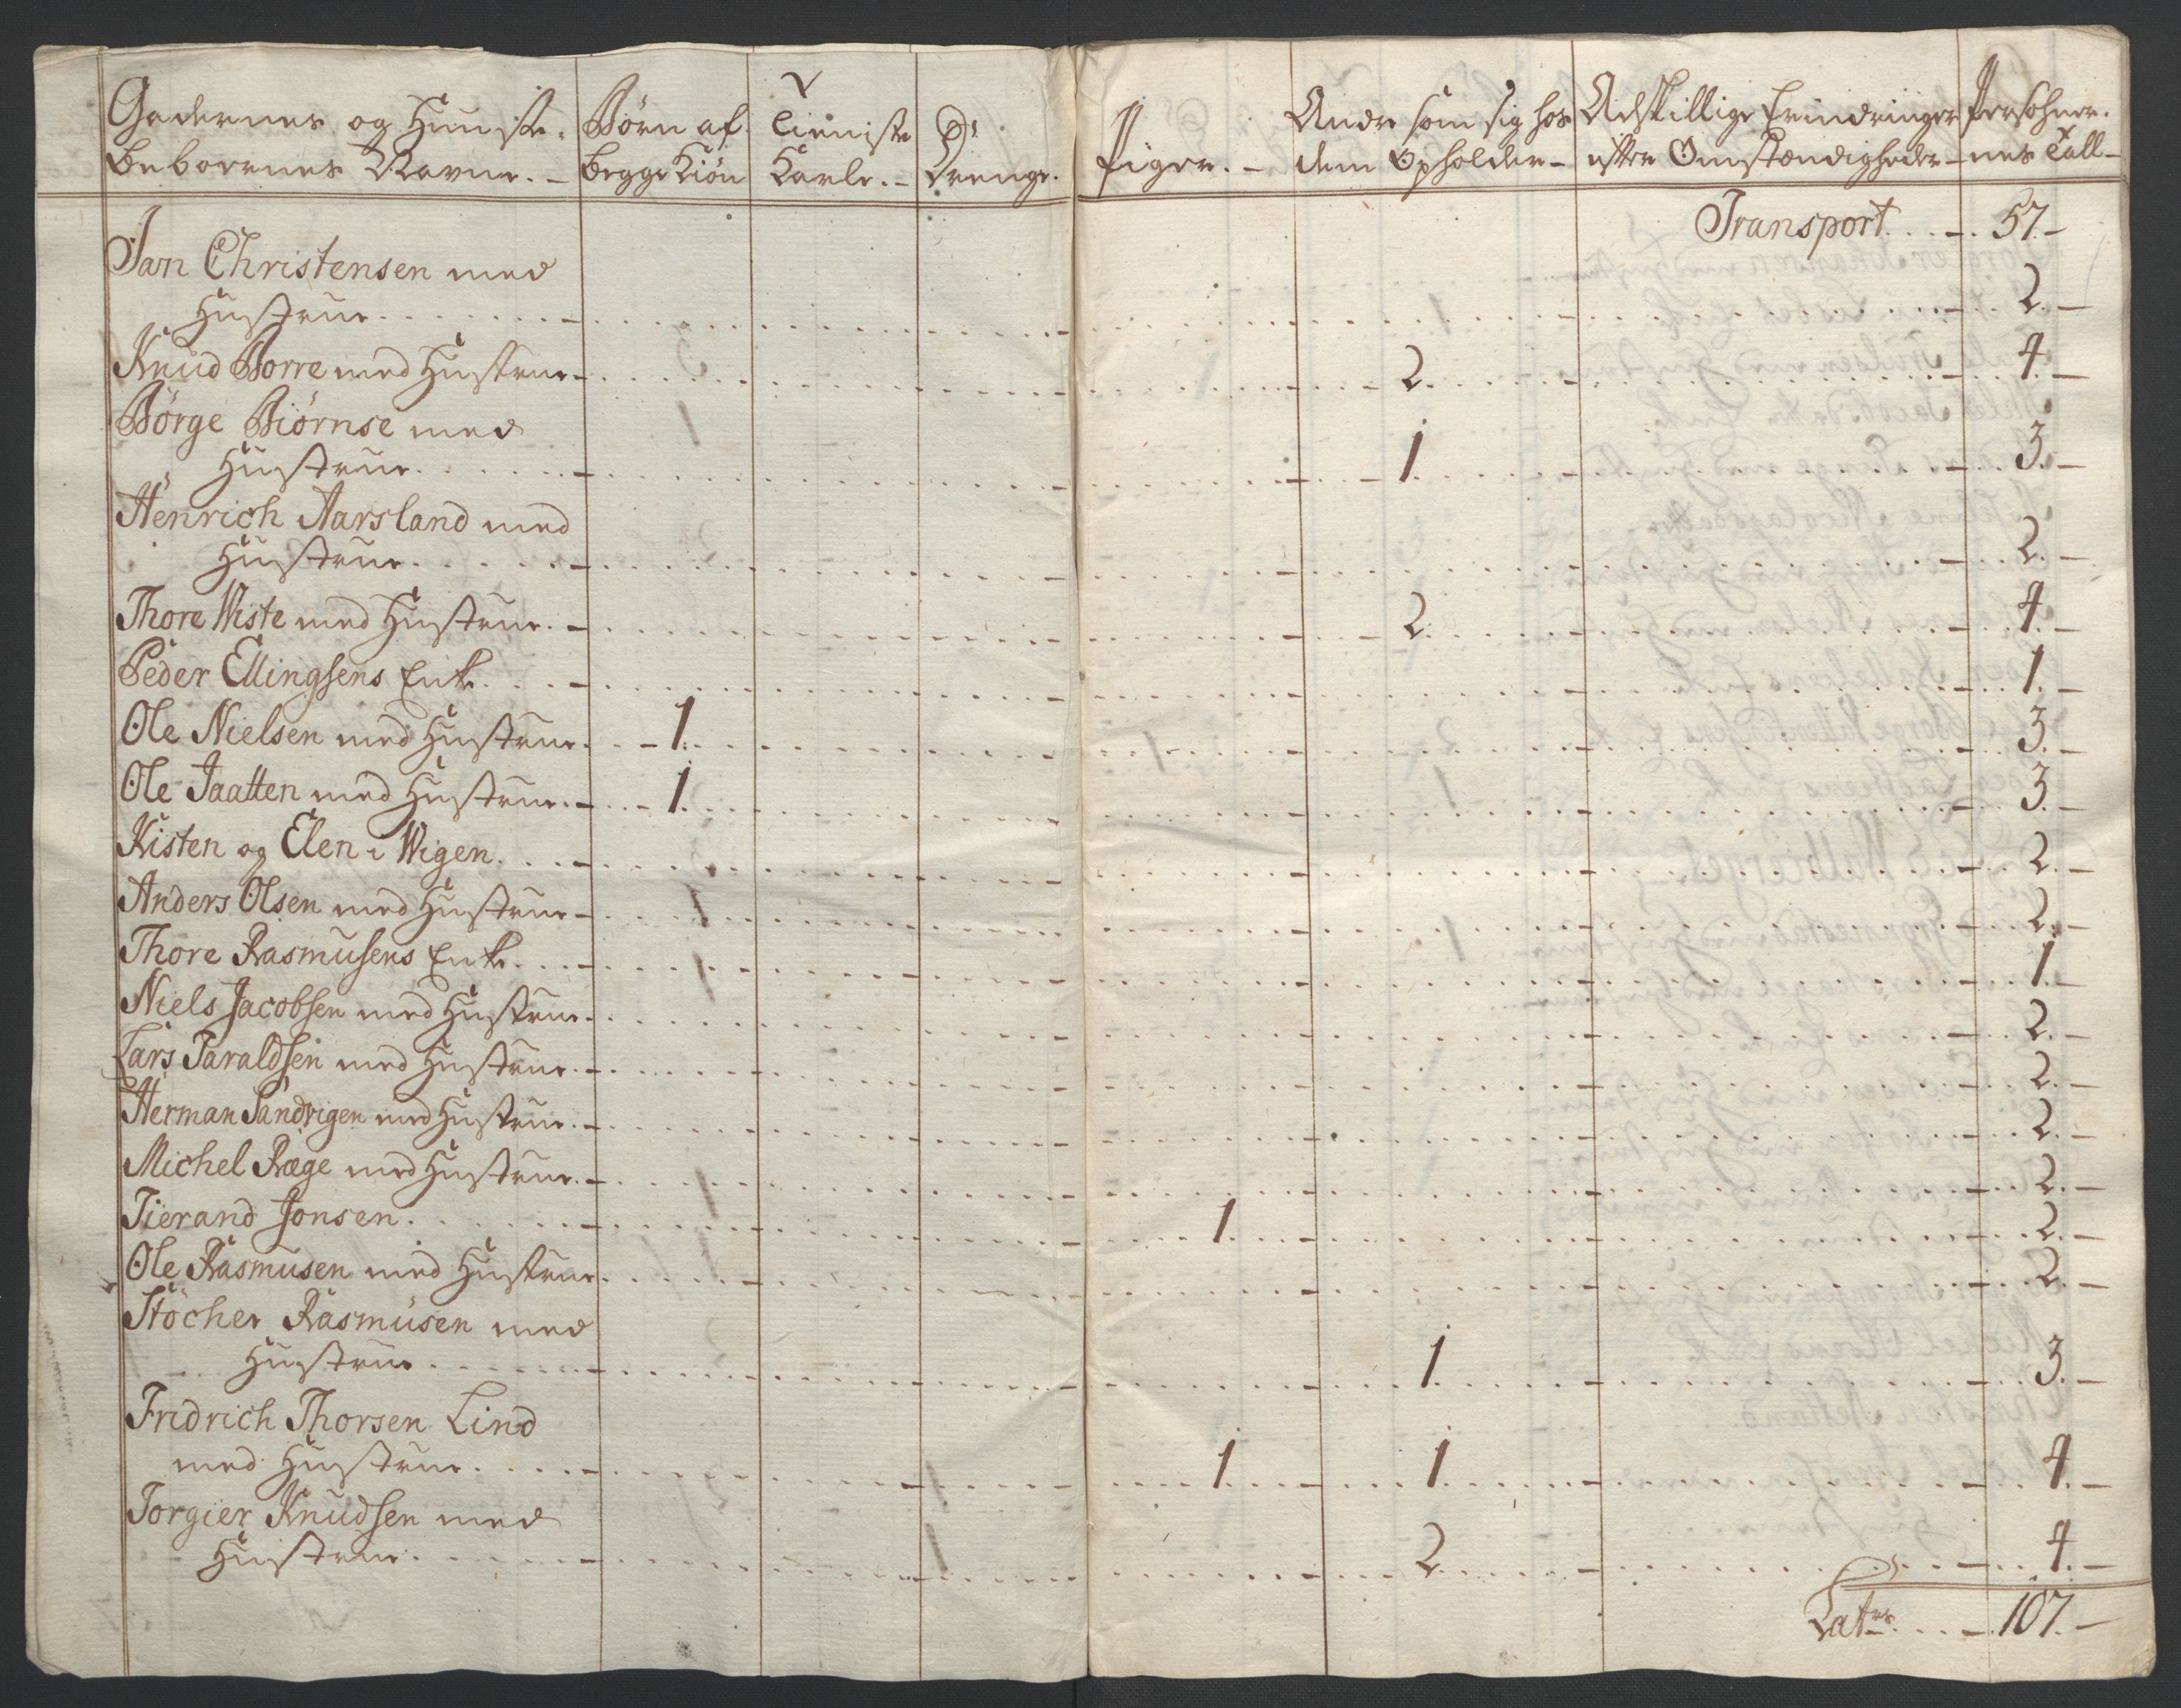 Gadernes og Huusse- Beboernes Navne.
Børn af begge Kiøn
Tieniste Karle.
Dt Drenge.
Piger.
Andre som sig hos dem Opholder
Adskillige Erindringer efter Omstændigheder
Persohner- nes Tall
Transport 57.
Jan Christensen med
Hustrue 2.
Knud Borre med Hustrue 2. 4.
Børge Biørnse med
Hustrue 1 3.
Henrich Aarsland med
Hustrue 2.
Thore Wiste med Hustrue 2. 4.
Peder Ellingsens Enke 1.
Ole Nielsen med Hustrue 1. 3.
Ole Jaatten med Hustrue 1. 3.
Kisten og Elen i Wigen 2.
Anders Olsen med Hustrue 2.
Thore Rasmusens Enke 1.
Niels Jacobsen med Hustrue 2.
Lars Taraldsen med Hustrue 2.
Herman Sandvigen med Hustrue 2.
Michel Rege med Hustrue 2.
Tierand Jonsen 1. 2.
Ole Rasmusen med Hustrue 2.
Stöcher Rasmusen med
Hustrue 1. 3.
Fridrich Thorsen Lind
med Hustrue 1. 1. 4.
Torgier Knudsen med
Hustrue 2. 4.
Latus 107.